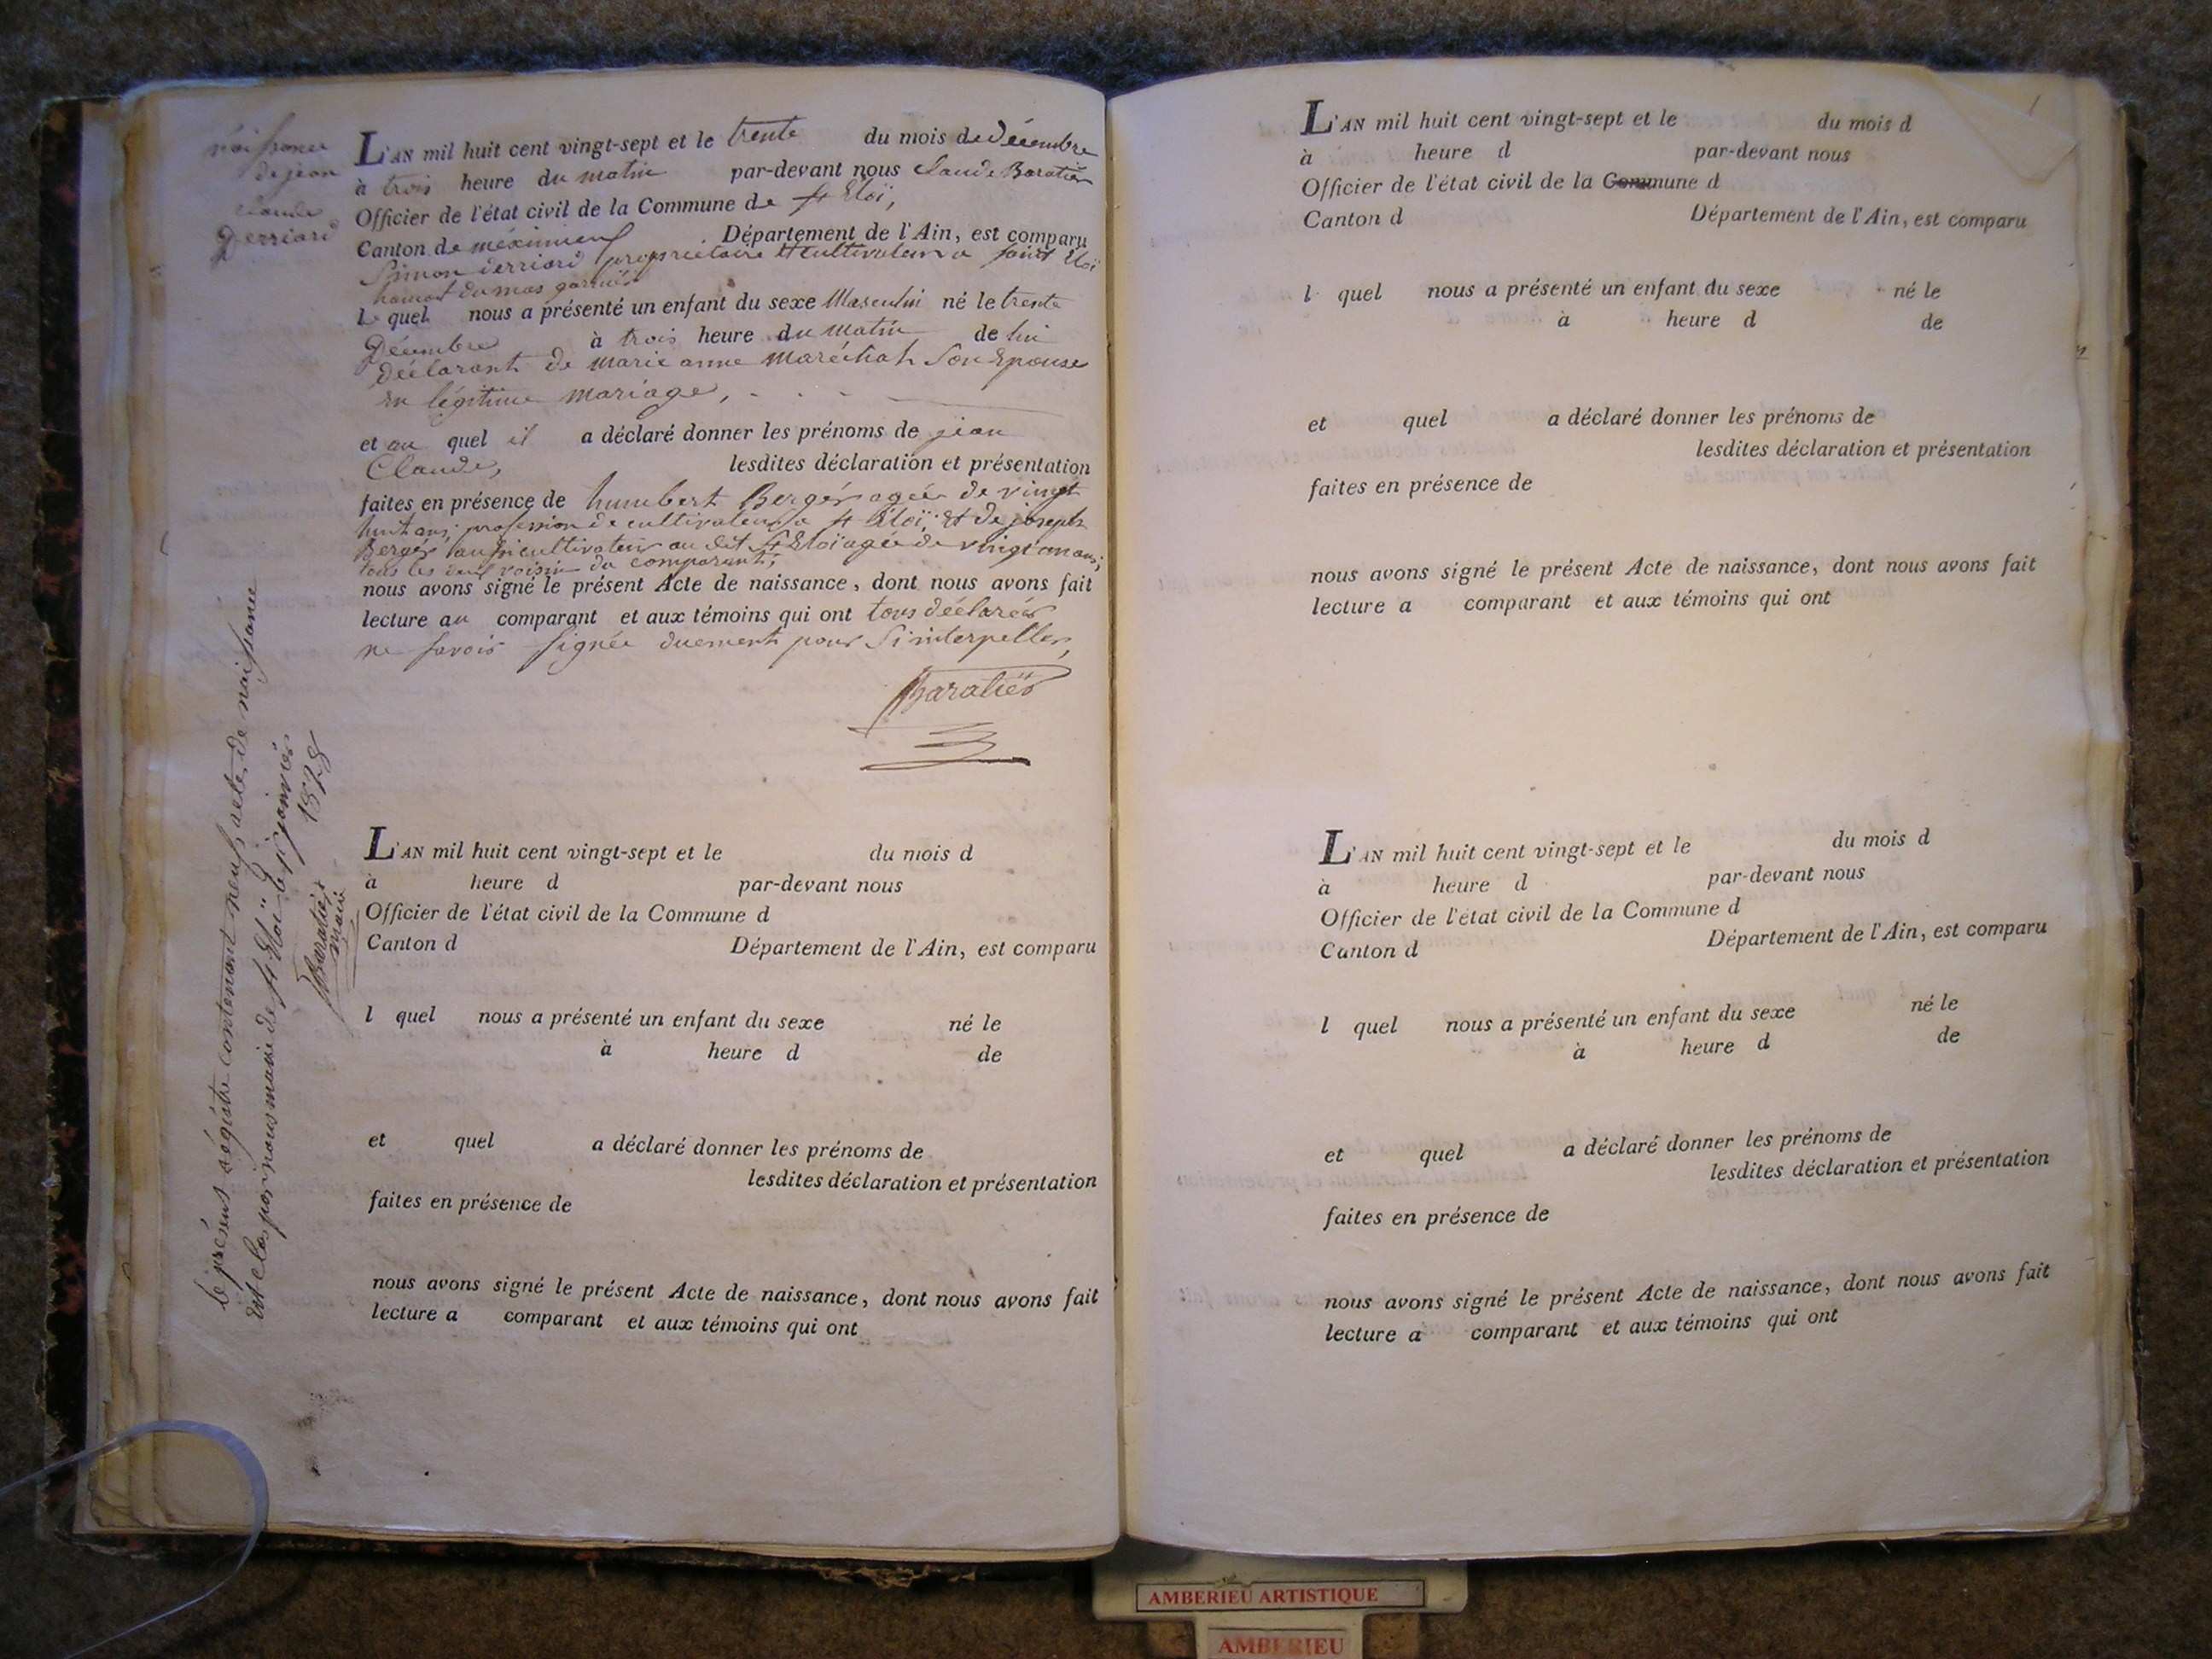 naissance
de jean
claude
Derriard
L'AN mil huit cent vingt-sept et le trente du mois de Décembre
à trois heure du matin par-devant nous Claude Baratier
Officier de l'état civil de la Commune de St Eloï,
Canton de méximieux Département de l'Ain, est comparu
Simon derriard propriétaire et cultivateur a saint Eloï
hamaut du mas
le quel nous a présenté un enfant du sexe Masculin né le trente
Décembre à trois heure du matin de lui
déclarant de marie anne maréchal Son Epouse
en légitime mariage,
et au quel il a déclaré donner les prénoms de jean
Claude, lesdites déclaration et présentation
faites en présence de humbert Bergér agée de vingt
huit ans, profession de cultivateur a St Eloï, et de joseph
Bergér aussi cultivateur au dit St Eloï agée de vingt ans;
tous les deux voisin du comparant;
nous avons signé le présent Acte de naissance, dont nous avons fait
lecture au comparant et aux témoins qui ont tous déclarés
ne savoir signée duement pour Si interpeller,
Baratier
le présent régistre contenant neufs acte de naissance
Est clos par nous maire de St Eloï le janvier
1828
Baratier
maire
L'AN mil huit cent vingt-sept et le du mois d
à heure d par-devant nous
Officier de l'état civil de la Commune d
Canton d Département de l'Ain, est comparu
l quel nous a présenté un enfant du sexe né le
à heure d de
et quel a déclaré donner les prénoms de
lesdites déclaration et présentation
faites en présence de
nous avons signé le présent Acte de naissance, dont nous avons fait
lecture a comparant et aux témoins qui ont
L'AN mil huit cent vingt-sept et le du mois d
à heure d par-devant nous
Officier de l'état civil de la Commune d
Canton d Département de l'Ain, est comparu
l quel nous a présenté un enfant du sexe né le
à heure d de
et quel a déclaré donner les prénoms de
lesdites déclaration et présentation
faites en présence de
nous avons signé le présent Acte de naissance, dont nous avons fait
lecture a comparant et aux témoins qui ont
L'AN mil huit cent vingt-sept et le du mois d
à heure d par-devant nous
Officier de l'état civil de la Commune d
Canton d Département de l'Ain, est comparu
l quel nous a présenté un enfant du sexe né le
à heure d de
et quel a déclaré donner les prénoms de
lesdites déclaration et présentation
faites en présence de
nous avons signé le présent Acte de naissance, dont nous avons fait
lecture a comparant et aux témoins qui ont
AMBERIEU ARTISTIQUE
AMBERIEU